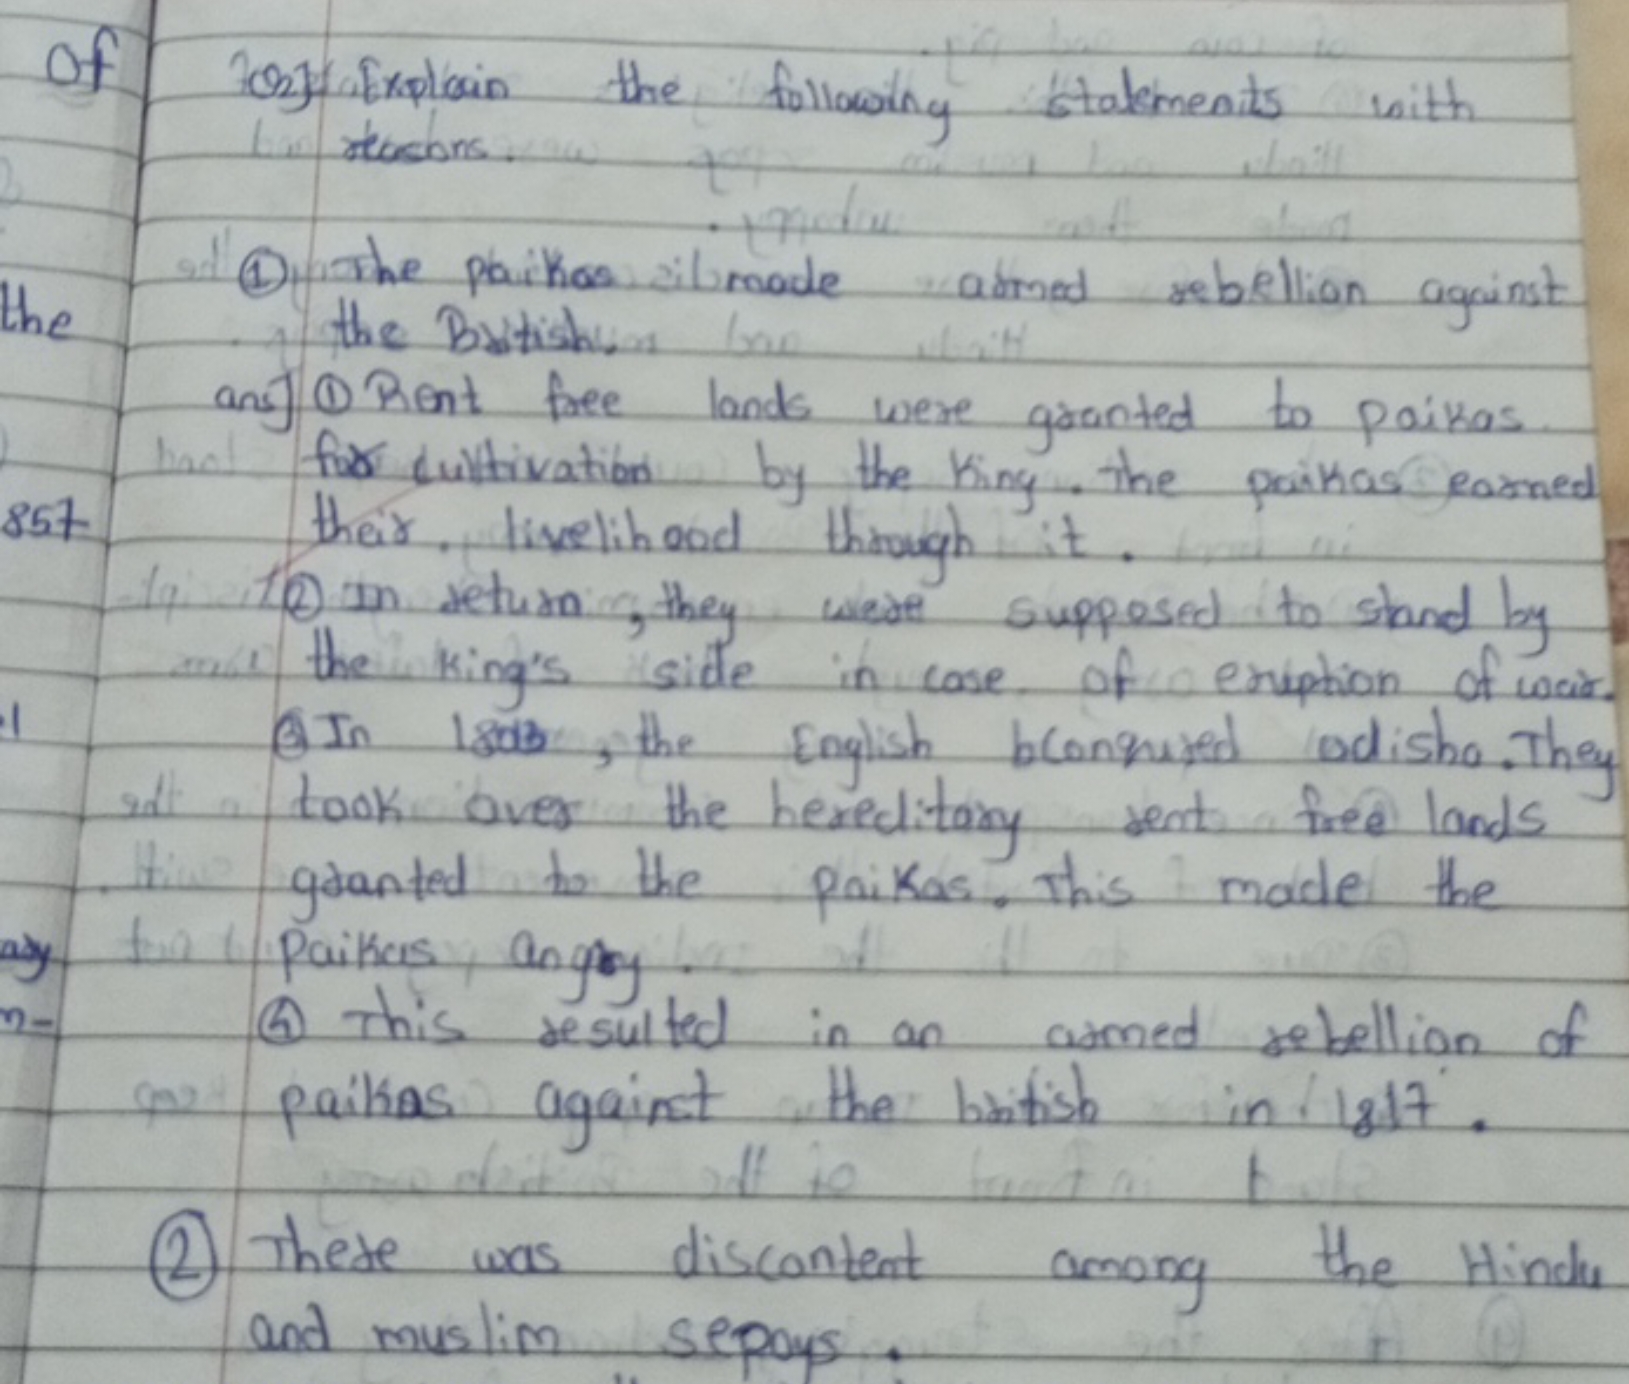 of
Q2] Explain the following statements with
reasons.
① The paikas made armed rebellian against
the
the British.
ans] ① Rent free lands were granted to paikas
for cultivation by the King. The paikas earned
857
their livelihood through it.
② In return, they were supposed to stand by
the king's side in case of eruption of war.
③ In 1803, the English conqured odisha. They
took over the hereditary rent free lands
granted to the paikas. This made the
paikas angry.
④ This resulted in an armed rebellian of
paikas against the british in 1817.
② There was discontent among the Hindu
and muslim sepoys.